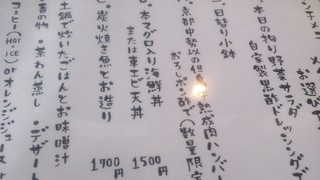 お選び
本日の拘り野菜サラダ
自家製黒酢ドレッシングで
日替り小鉢
京都中勢以の 熟成肉ハンバー
おろしポン酢で(数量限定
本マグロ入り海鮮丼
または車エビ天丼 1500円
炭火焼き魚とお造り 1700円
土鍋で炊いたごはんとお味噌汁
香の物・茶わん蒸し・デザート
コーヒー(HOT・ICE)orオレンジジュース